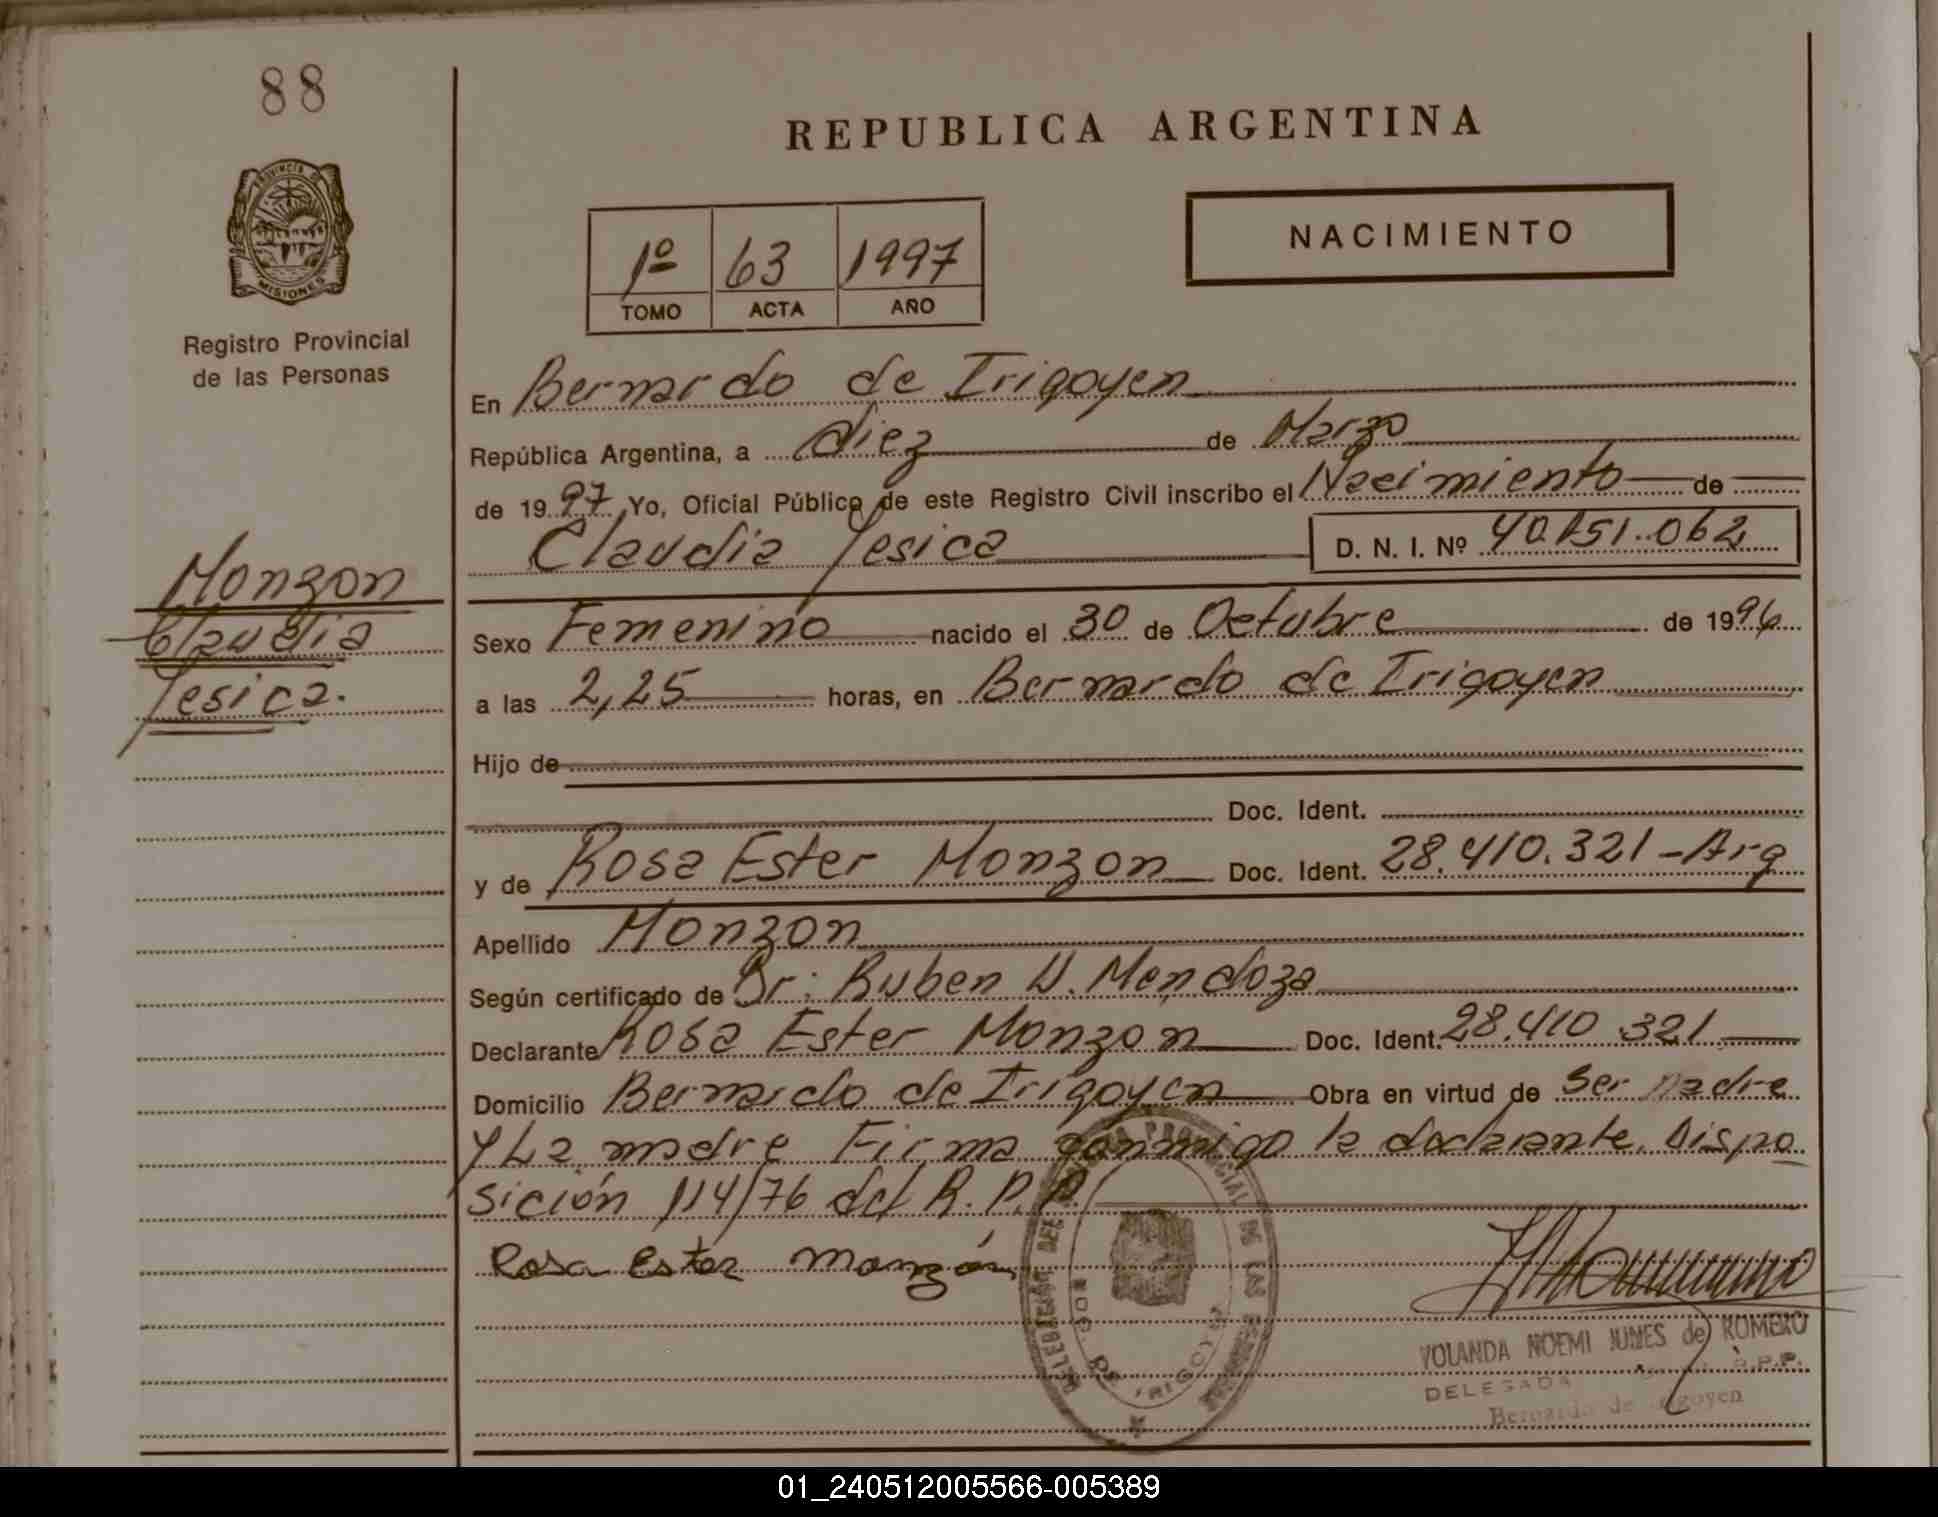 88
PROVINCIA DE
MISIONES
Registro Provincial
de las Personas
Monzon
Claudia
Yesica.
REPUBLICA ARGENTINA
1º 63 1997
TOMO ACTA AÑO
NACIMIENTO
En Bernardo de Irigoyen
República Argentina, a diez de Marzo
de 1997 Yo, Oficial Público de este Registro Civil inscribo el Nacimiento de
Claudia Yesica D. N. I. Nº 40.151.062
Sexo Femenino nacido el 30 de Octubre de 1996
a las 2,25 horas, en Bernardo de Irigoyen
Hijo de
Doc. Ident.
y de Rosa Ester Monzon Doc. Ident. 28.410.321 - Arg
Apellido Monzon
Según certificado de Dr: Ruben D. Mendoza
Declarante Rosa Ester Monzon Doc. Ident. 28.410.321
Domicilio Bernardo de Irigoyen Obra en virtud de ser madre
y La madre Firma conmigo la declarante. Dispo
sición 114/76 del R. P. P.
Rosa Ester Monzón
PROVINCIAL DE LAS
BDO. DE IRIGOYEN
YOLANDA NOEMI JUNES de ROMERO
DELEGADA R.P.P.
Bernardo de Irigoyen
01_240512005566-005389